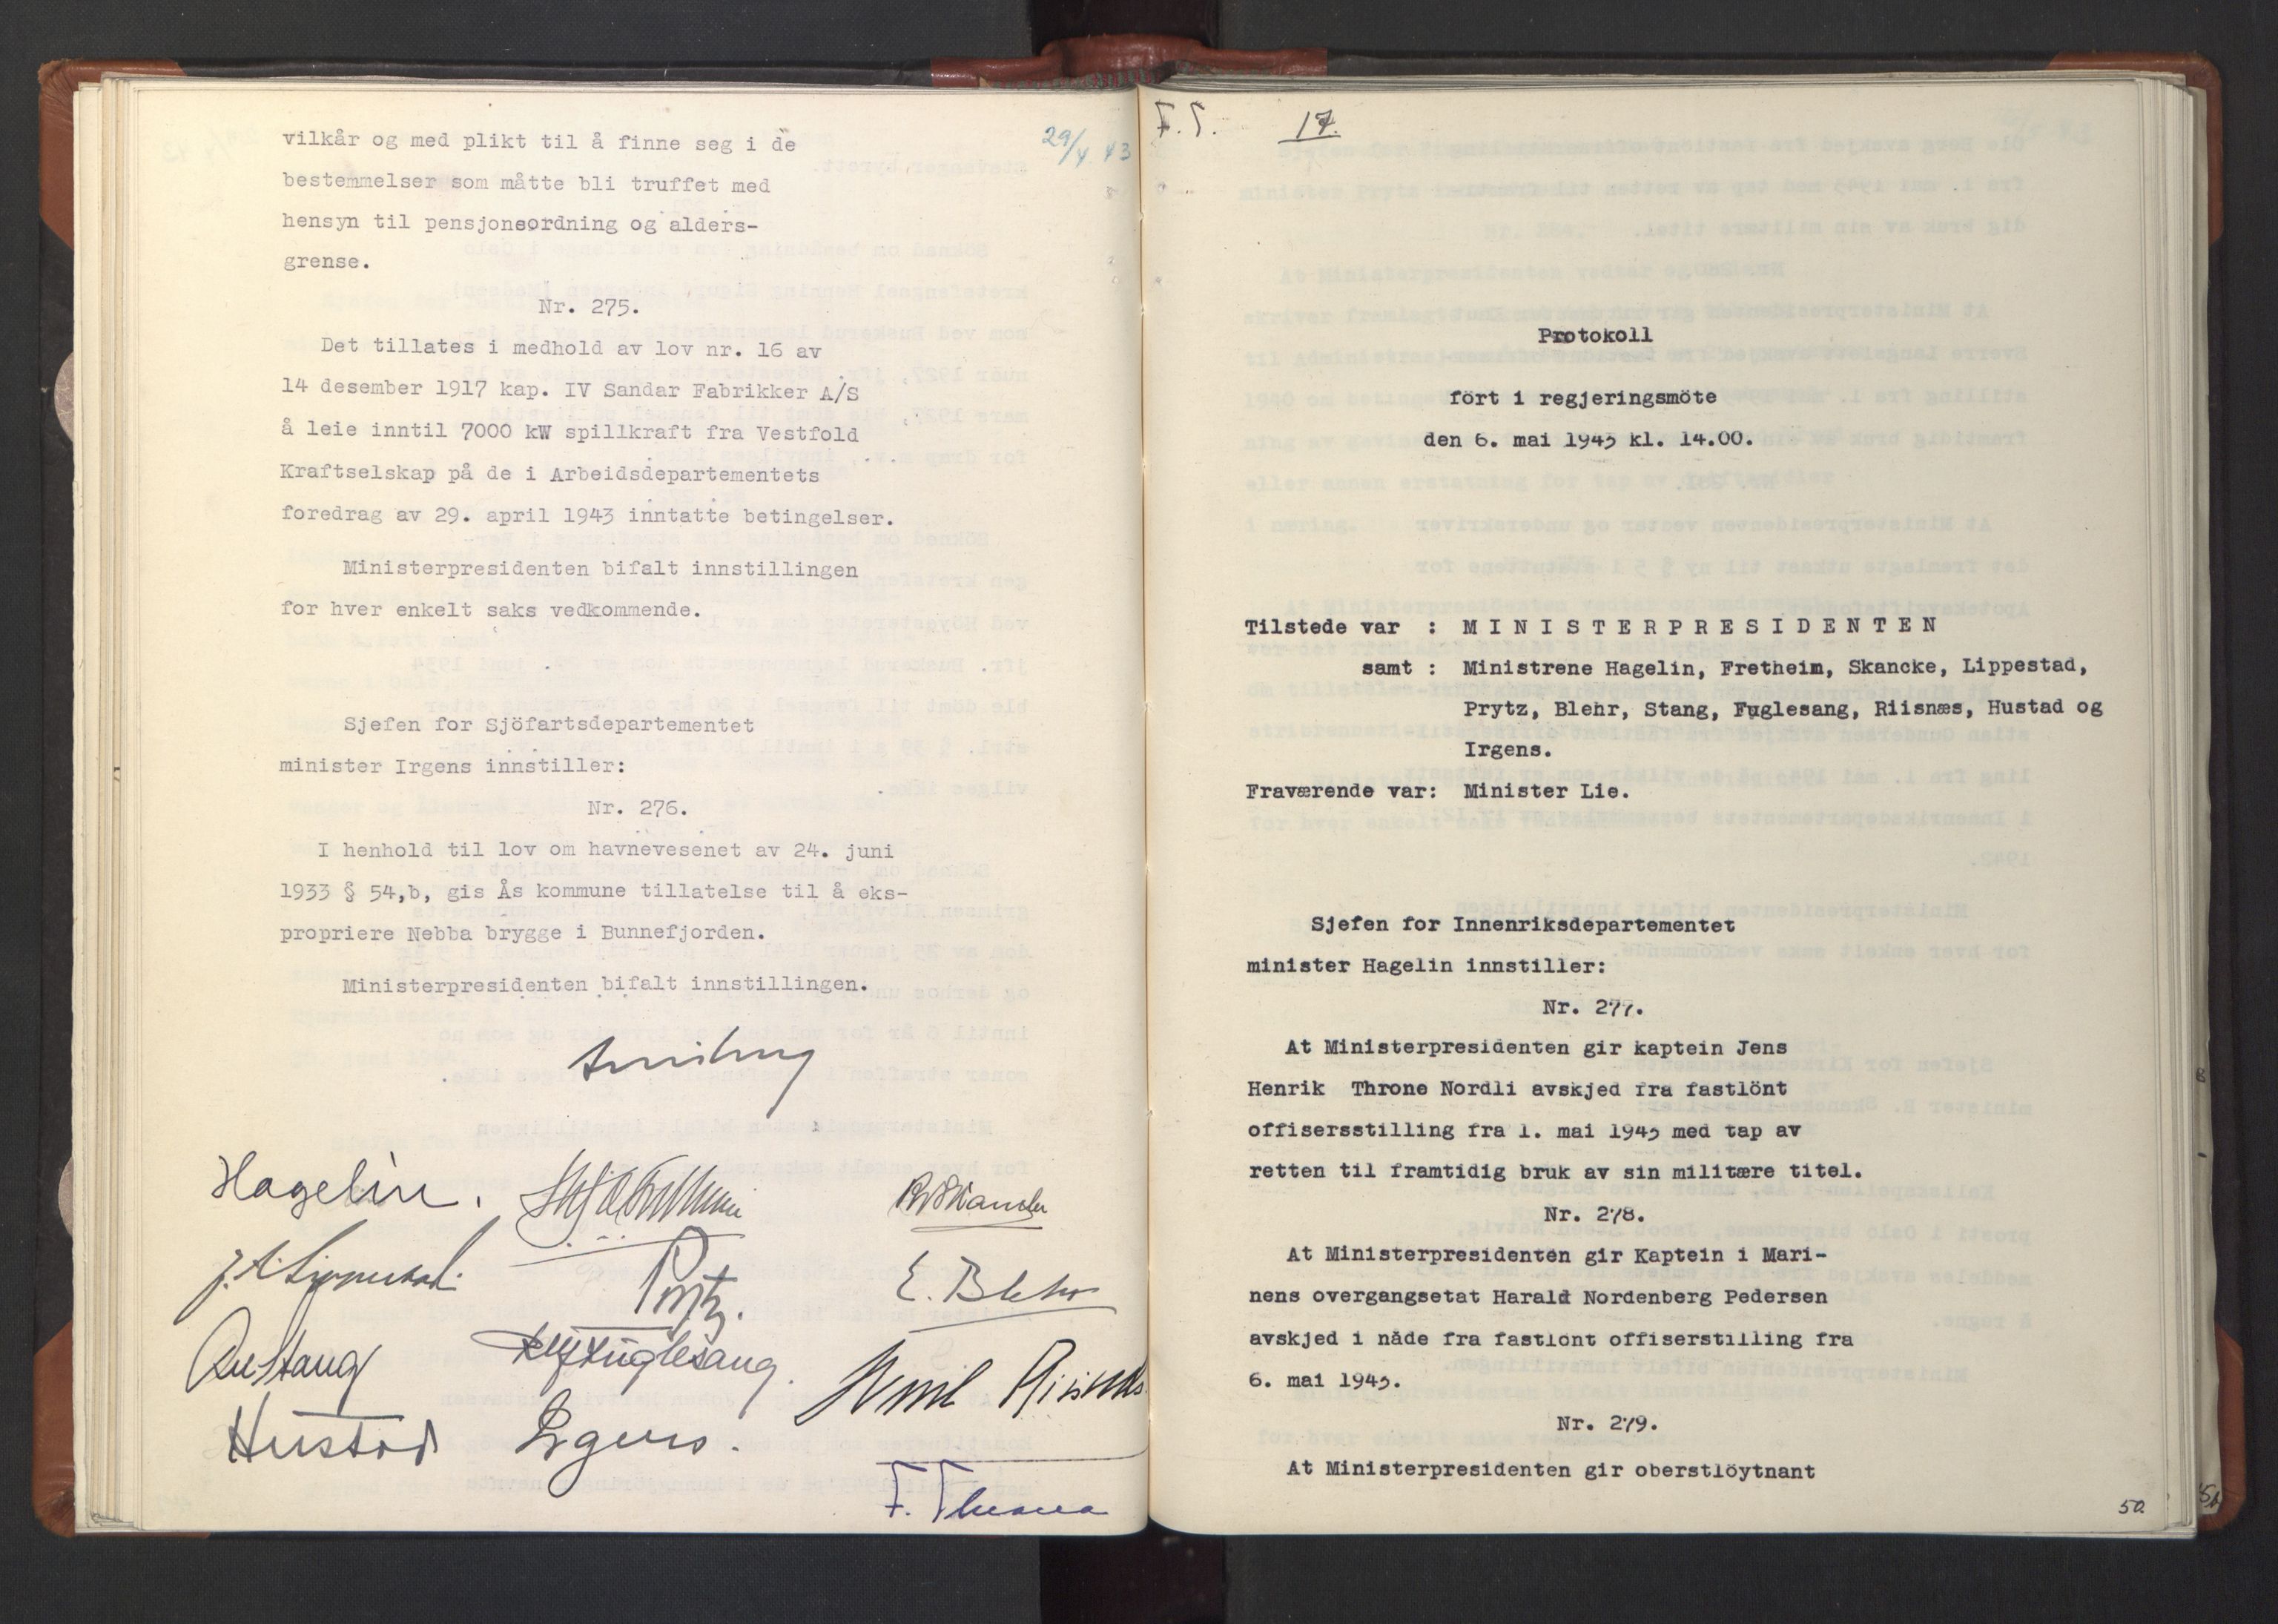 29/4 43
vilkår og med plikt til å finne seg i de
bestemmelser som måtte bli truffet med
hensyn til pensjonsordning og alders-
grense.
Nr. 275.
Det tillates i medhold av lov nr. 16 av
14 desember 1917 kap. IV Sandar Fabrikker A/S
å leie inntil 7000 kW spillkraft fra Vestfold
Kraftselskap på de i Arbeidsdepartementets
foredrag av 29. april 1943 inntatte betingelser.
Ministerpresidenten bifalt innstillingen
for hver enkelt saks vedkommende.
Sjefen for Sjöfartsdepartementet
minister Irgens innstiller:
Nr. 276.
I henhold til lov om havnevesenet av 24. juni
1933 § 54,b, gis Ås kommune tillatelse til å eks-
propriere Nebba brygge i Bunnefjorden.
Ministerpresidenten bifalt innstillingen.
Hagelin.
Prytz.
E. Blehr
Hustad Irgens.
F. T. 17.
Protokoll
fört i regjeringsmöte
den 6. mai 1943 kl. 14.00.
Tilstede var : MINISTERPRESIDENTEN
samt : Ministrene Hagelin, Fretheim, Skancke, Lippestad,
Prytz, Blehr, Stang, Fuglesang, Riisnæs, Hustad og
Irgens.
Fraværende var: Minister Lie.
Sjefen for Innenriksdepartementet
minister Hagelin innstiller:
Nr. 277.
At Ministerpresidenten gir kaptein Jens
Henrik Throne Nordli avskjed fra fastlönt
offisersstilling fra 1. mai 1943 med tap av
retten til framtidig bruk av sin militære titel.
Nr. 278.
At Ministerpresidenten gir Kaptein i Mari-
nens overgangsetat Harald Nordenberg Pedersen
avskjed i nåde fra fastlönt offiserstilling fra
6. mai 1943.
Nr. 279.
At Ministerpresidenten gir oberstlöytnant
50.